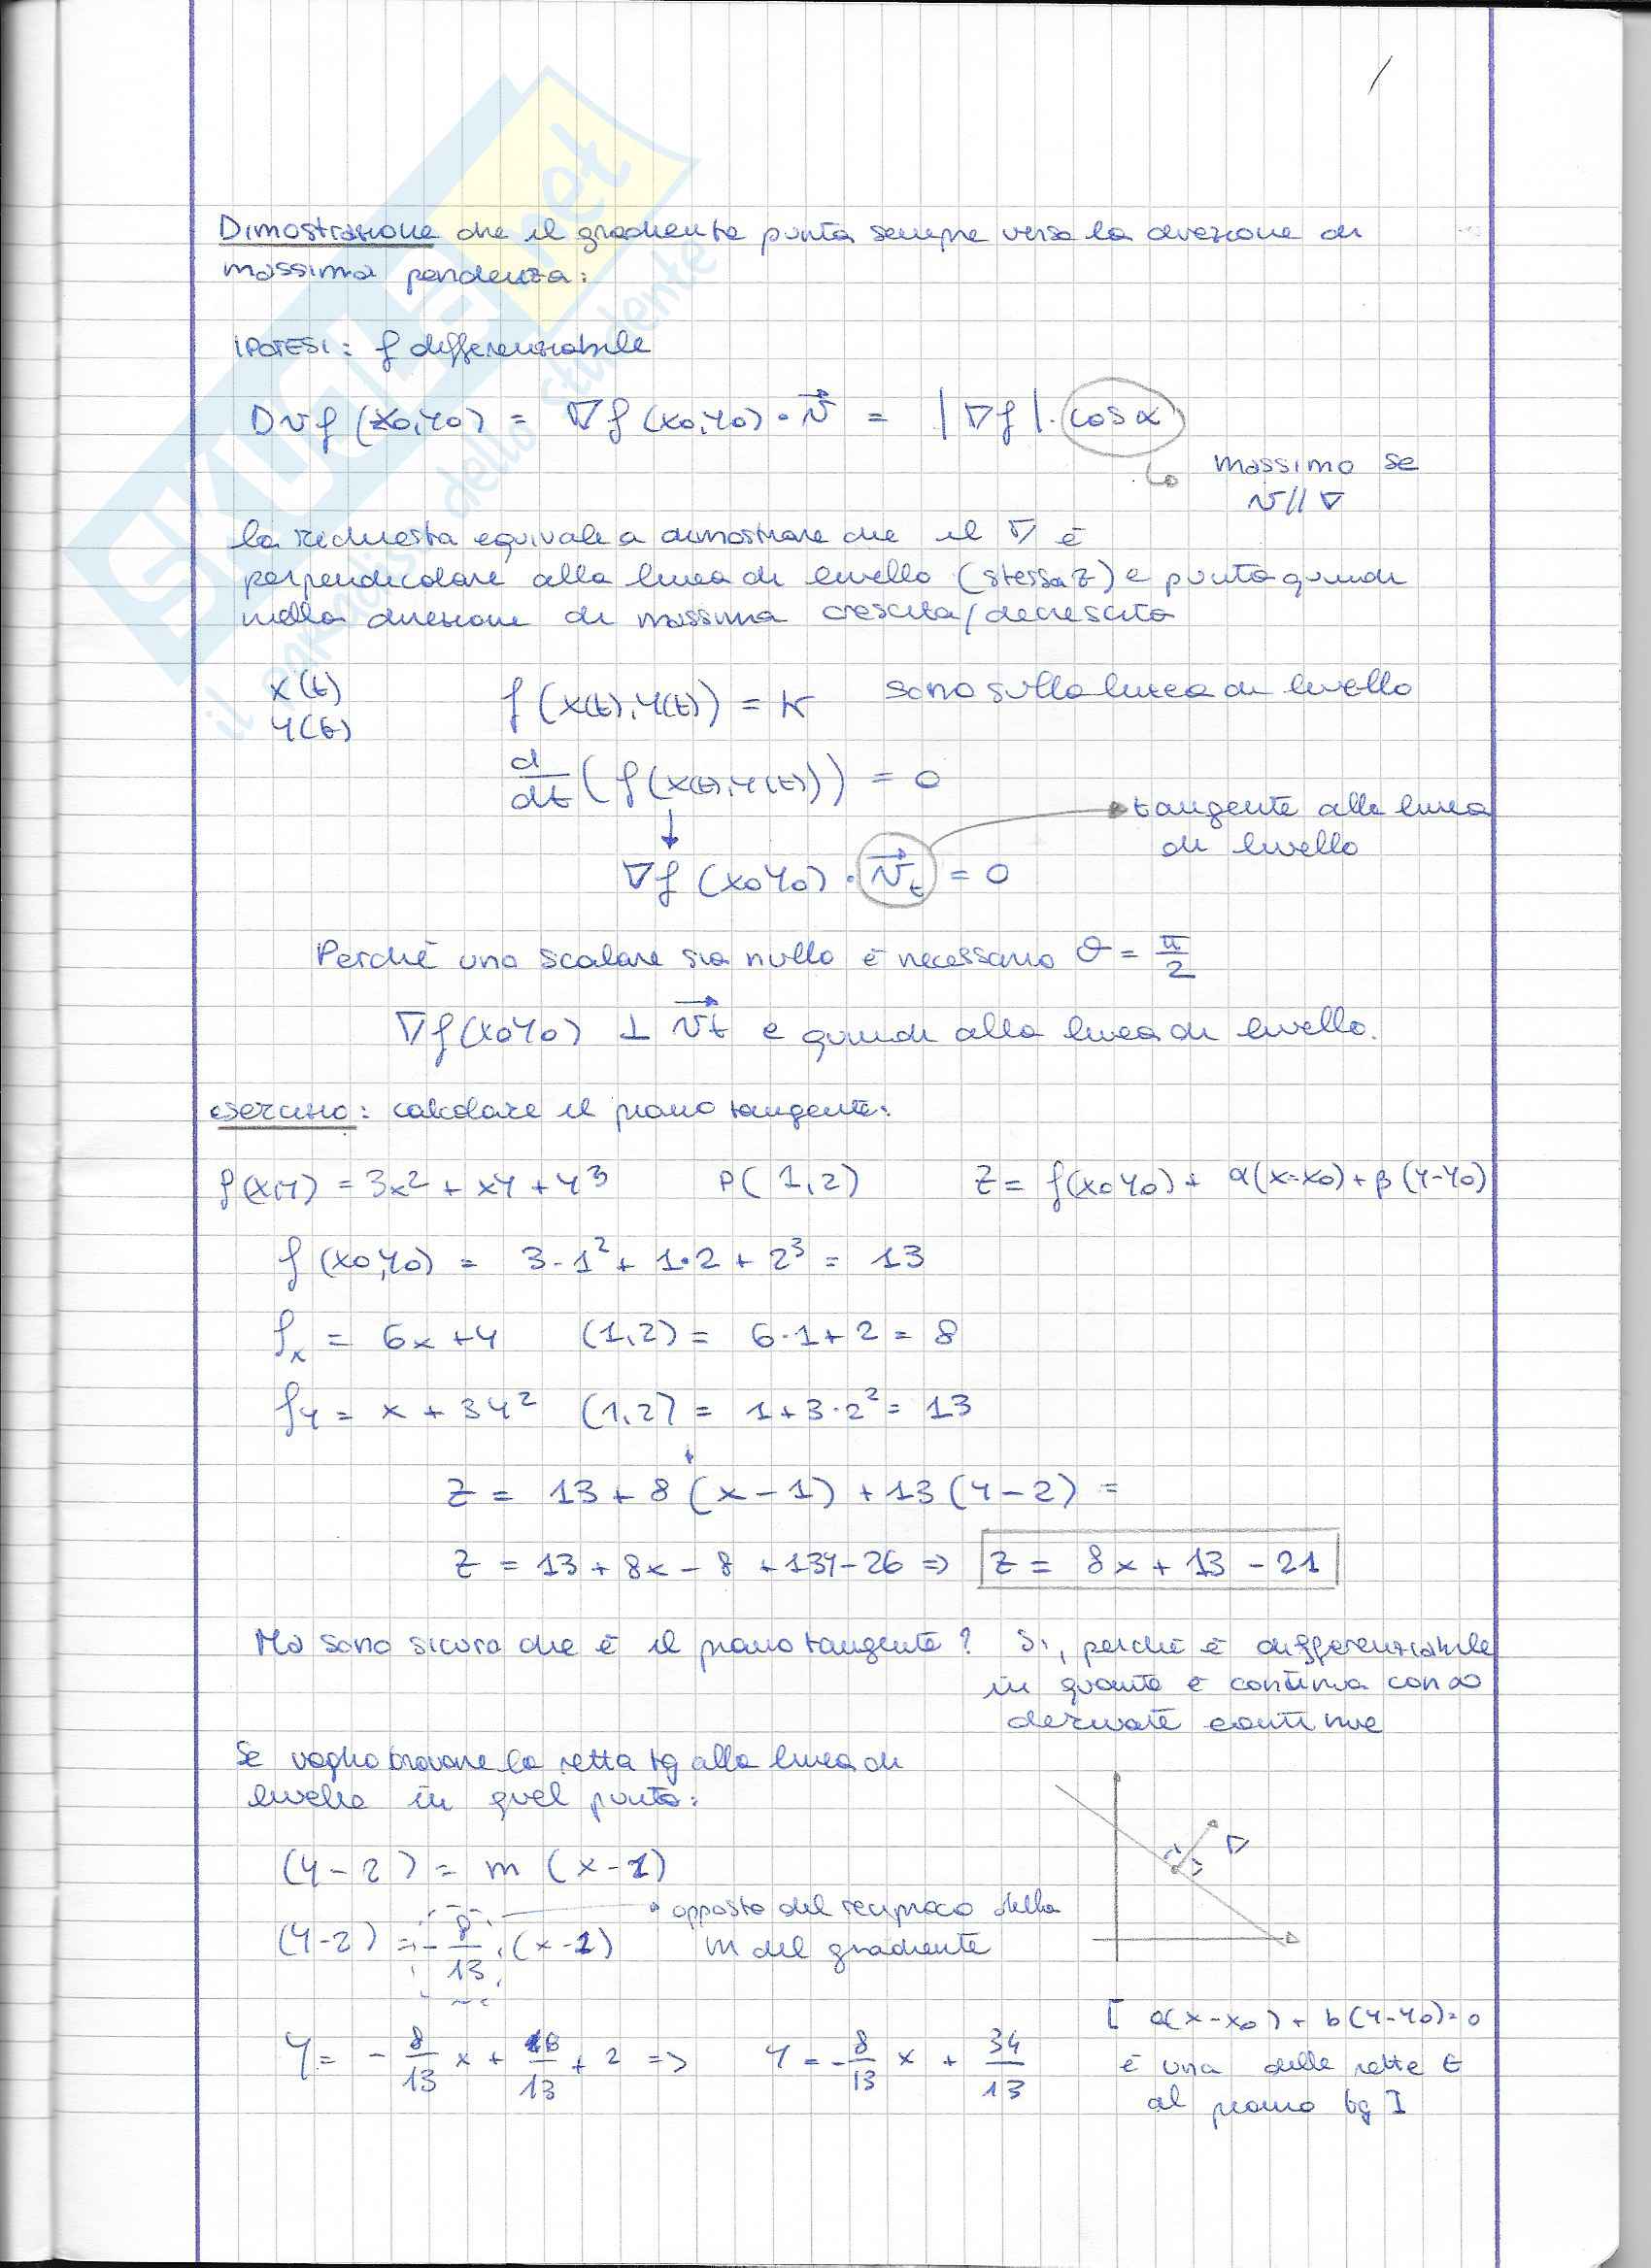 Dimostrazione che il gradiente punta sempre verso la direzione di
massima pendenza:
IPOTESI: f differenziabile
Dvf (x0,y0) = ∇f (x0,y0) · v⃗ = |∇f| · cos α
↳ massimo se
v // ∇
la richiesta equivale a dimostrare che il ∇ è
perpendicolare alla linea di livello (stessa z) e punta quindi
nella direzione di massima crescita/decrescita
x(t)
y(t)
f (x(t), y(t)) = K sono sulla linea di livello
d/dt (f (x(t), y(t))) = 0
↓
→ tangente alla linea
di livello
∇f (x0 y0) · v⃗t = 0
Perché uno scalare sia nullo è necessario θ = π/2
∇f (x0 y0) ⊥ v⃗t e quindi alla linea di livello.
esercizio: calcolare il piano tangente:
f(x,y) = 3x² + xy + y³ P( 1,2) z = f(x0 y0) + α(x-x0) + β (y-y0)
f (x0,y0) = 3·1² + 1·2 + 2³ = 13
fx = 6x + y (1,2) = 6·1 + 2 = 8
fy = x + 3y² (1,2) = 1 + 3·2² = 13
z = 13 + 8 (x - 1) + 13 (y - 2) =
z = 13 + 8x - 8 + 13y - 26 => z = 8x + 13 - 21
Ma sono sicura che è il piano tangente? Sì, perché è differenziabile
in quanto è continua con ∞
derivate continue
Se voglio trovare la retta tg alla linea di
livello in quel punto:
(y - 2) = m (x - 1)
∇
(y - 2) = - 8/13 · (x - 1) → opposto del reciproco della
m del gradiente
y = - 8/13 x + 8/13 + 2 => y = - 8/13 x + 34/13
[ a(x-x0) + b(y-y0) = 0
è una delle rette ∈
al piano tg ]
SKUOLA.net
il paradiso dello studente